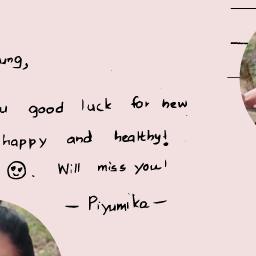 ung,
u good luck for new
happy and healthy!
😍. Will miss you!
— Piyumika —